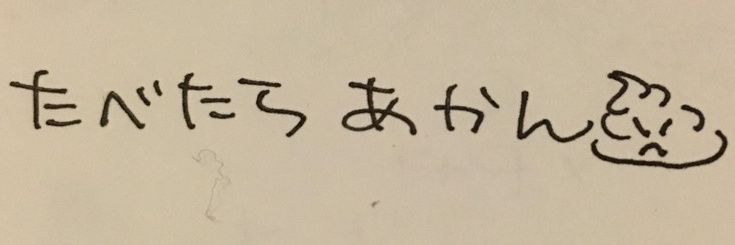 たべたら あかん